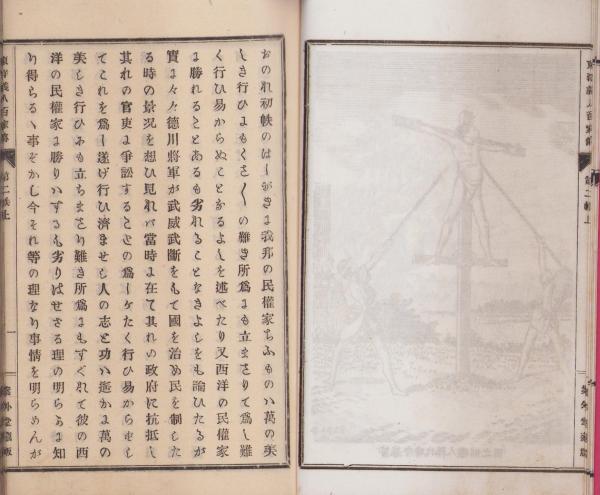 おのれ初帙のはしがきに我邦の民權家ちふものハ萬の美
しき行ひよもくさ〴〵の難き所爲にも立まさりて爲し難
く行ひ易からぬことなるよしを述べたり又西洋の民權家
に勝れることあるも劣れることなきよしをも論ひたるが
實よ々々德川將軍が武威武斷をもて國を治め民を制した
る時の景况を想ひ見れバ當時よ在て其れの政府に抗抵し
其れの官吏よ爭訟するときの爲しがたく行ひ易からむし
てこれを爲し遂げ行ひ濟ませし人の志と功ハ遙かよ萬の
美しき行ひにも立ちまさり難き所爲にもすぐれて彼の西
洋の民權家よ勝りハするも劣りばせざる理の明らかよ知
り得らるゝ事ぞかし今それ等の理なり事情を明らめんが
東洋義人百家傳 第二帙上
一
案外堂藏版
東洋義人百家傳 第二帙上
案外堂藏版